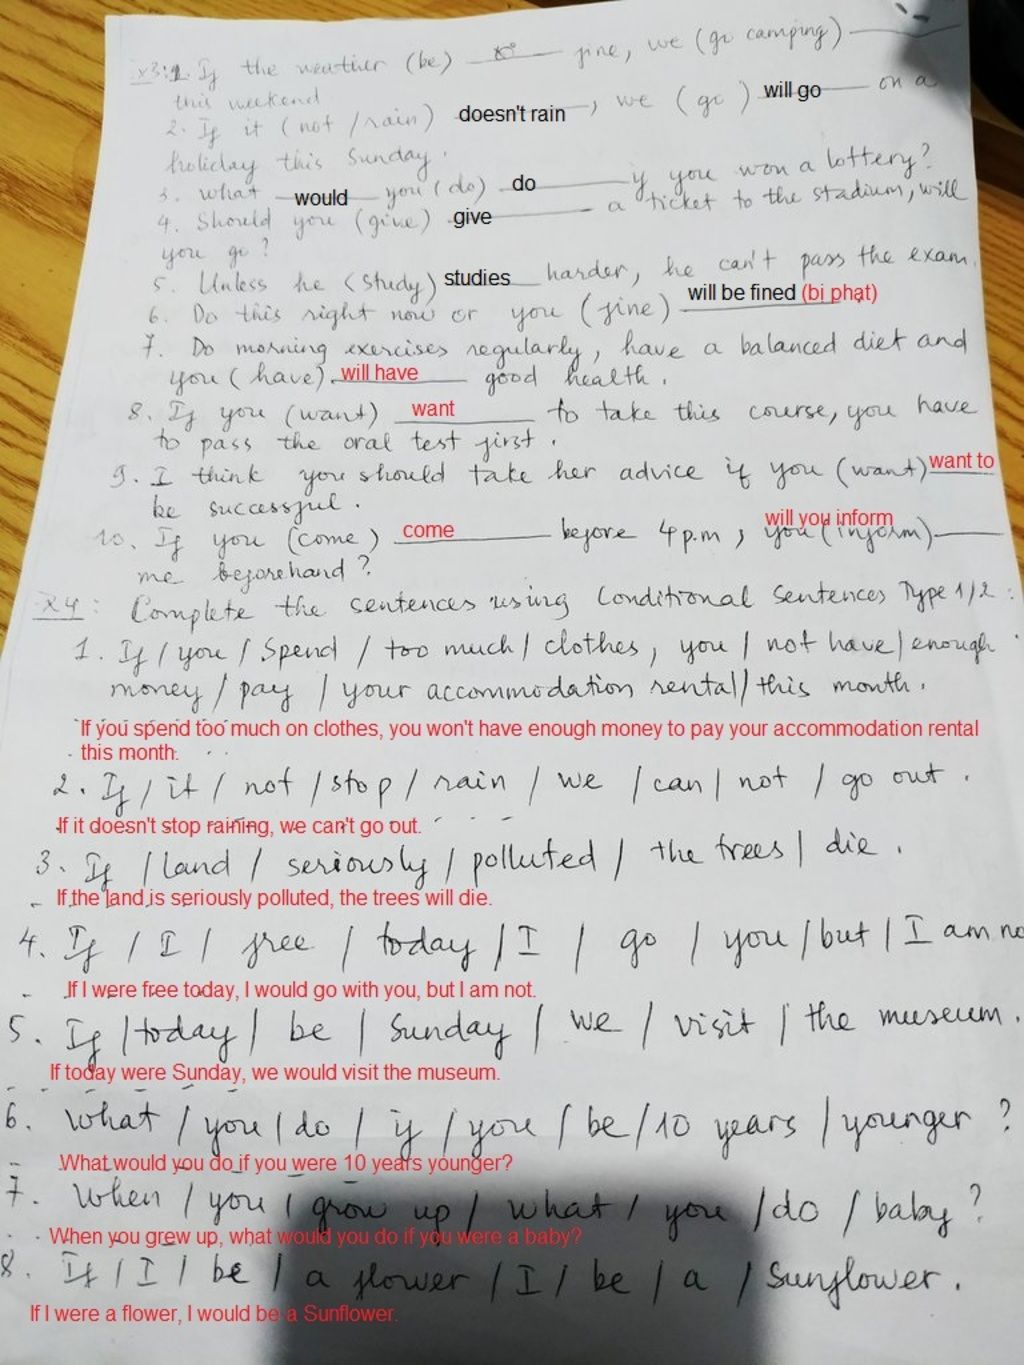 x3: 1. If the weather (be) is fine, we (go camping)
this weekend
2. If it (not / rain) doesn't rain, we (go) will go on a
holiday this Sunday.
3. What would you (do) do if you won a lottery?
4. Should you (give) give a ticket to the stadium, will
you go?
5. Unless he (study) studies harder, he can't pass the exam.
6. Do this right now or you (fine) will be fined (bi phat)
7. Do morning exercises regularly, have a balanced diet and
you (have) will have good health.
8. If you (want) want to take this course, you have
to pass the oral test first.
9. I think you should take her advice if you (want) want to
be successful.
10. If you (come) come before 4 p.m, you (inform) will you inform
me beforehand?
x4: Complete the sentences using Conditional Sentences Type 1/2:
1. If / you / Spend / too much / clothes, you / not have / enough
money / pay / your accommodation rental / this month.
If you spend too much on clothes, you won't have enough money to pay your accommodation rental
this month.
2. If / it / not / stop / rain / we / can / not / go out.
If it doesn't stop raining, we can't go out.
3. If / land / seriously / polluted / the trees / die.
If the land is seriously polluted, the trees will die.
4. If / I / free / today / I / go / you / but / I am no
If I were free today, I would go with you, but I am not.
5. If / today / be / Sunday / we / visit / the museum.
If today were Sunday, we would visit the museum.
6. What / you / do / if / you / be / 10 years / younger?
What would you do if you were 10 years younger?
7. When / you / grow up / what / you / do / baby?
When you grew up, what would you do if you were a baby?
8. If / I / be / a flower / I / be / a / Sunflower.
If I were a flower, I would be a Sunflower.